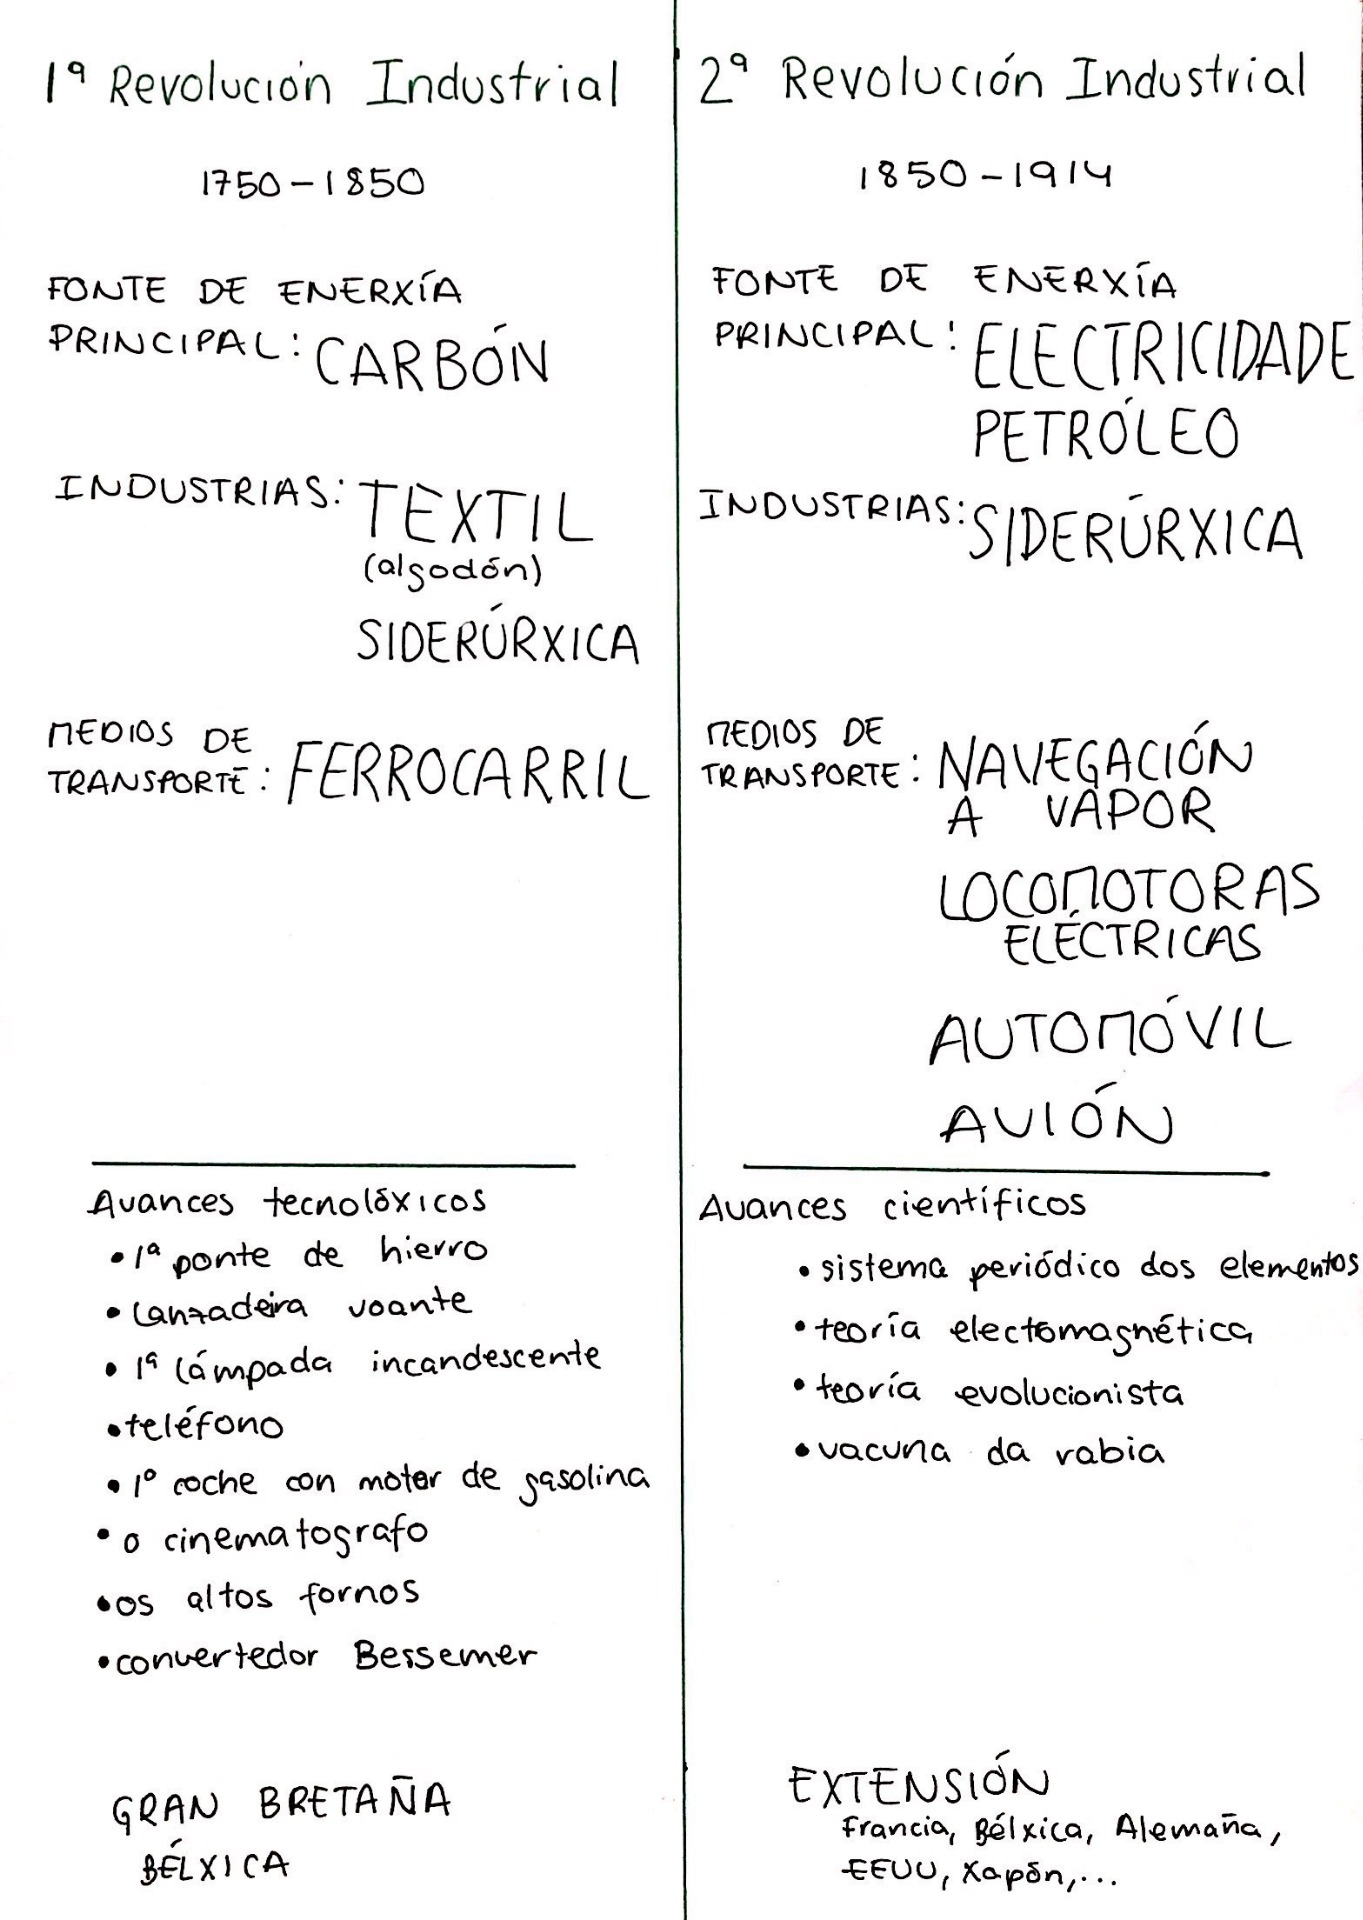 1ª Revolución Industrial
1750-1850
FONTE DE ENERXÍA
PRINCIPAL: CARBÓN
INDUSTRIAS: TEXTIL
(algodón)
SIDERÚRXICA
MEDIOS DE
TRANSPORTE: FERROCARRIL
Avances tecnolóxicos
•1ª ponte de hierro
•Lanzadeira voante
•1ª lámpada incandescente
•teléfono
•1º coche con motor de gasolina
•o cinematografo
•os altos fornos
•convertedor Bessemer
GRAN BRETAÑA
BÉLXICA
2ª Revolución Industrial
1850-1914
FONTE DE ENERXÍA
PRINCIPAL: ELECTRICIDADE
PETRÓLEO
INDUSTRIAS: SIDERÚRXICA
MEDIOS DE
TRANSPORTE: NAVEGACIÓN
A VAPOR
LOCOMOTORAS
ELÉCTRICAS
AUTOMÓVIL
AVIÓN
Avances científicos
•sistema periódico dos elementos
•teoría electomagnética
•teoría evolucionista
•vacuna da rabia
EXTENSIÓN
Francia, Bélxica, Alemaña,
EEUU, Xapón,...